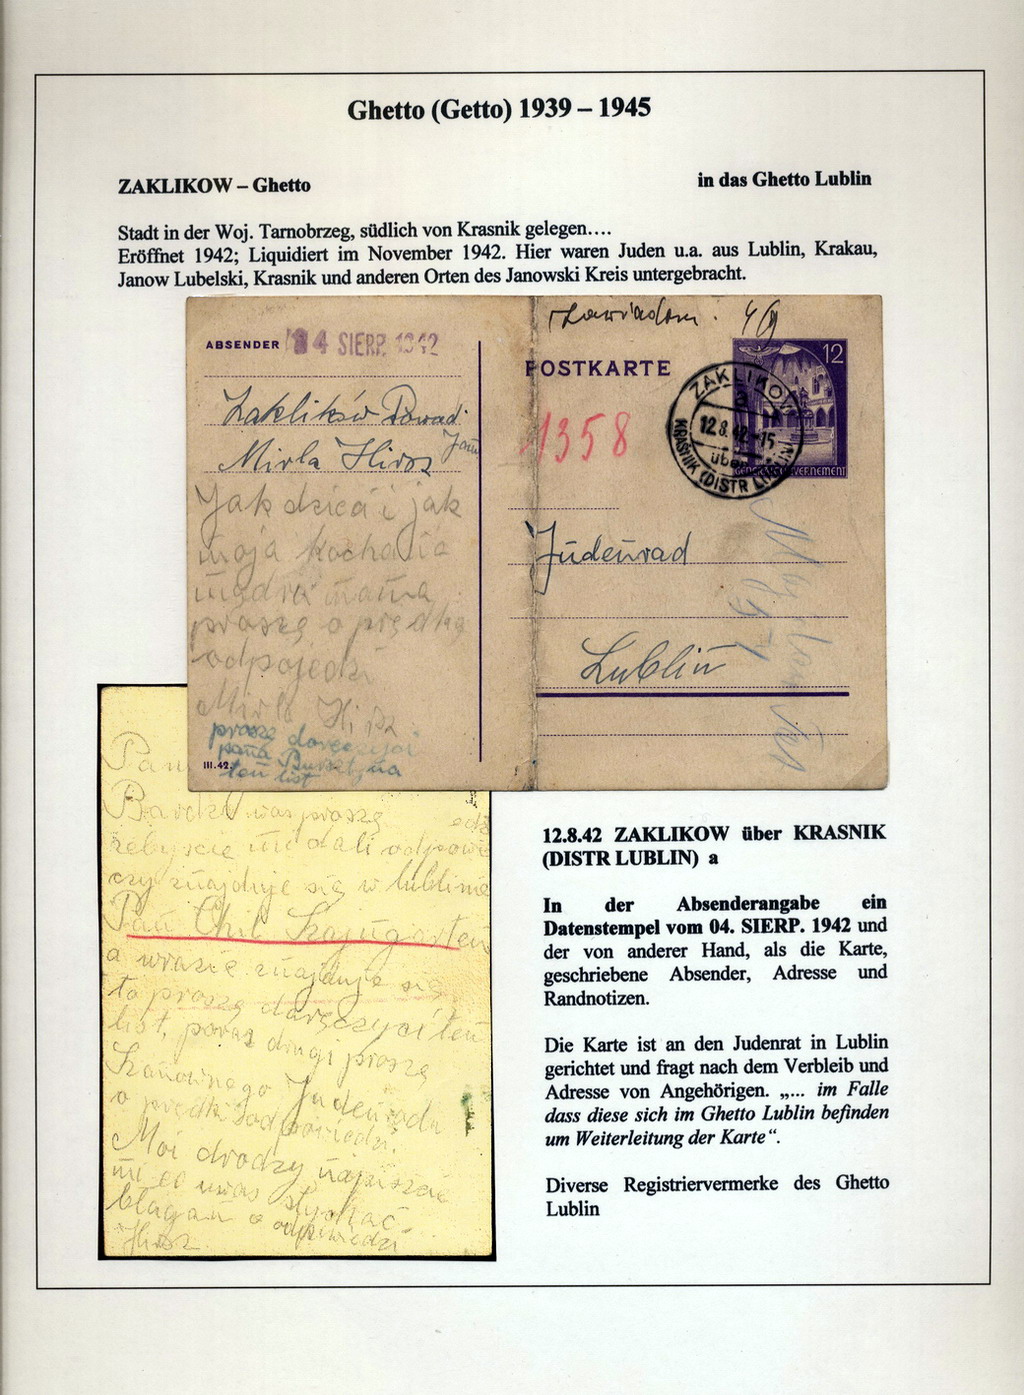 Ghetto (Getto) 1939 – 1945
ZAKLIKOW – Ghetto
in das Ghetto Lublin
Stadt in der Woj. Tarnobrzeg, südlich von Krasnik gelegen….
Eröffnet 1942; Liquidiert im November 1942. Hier waren Juden u.a. aus Lublin, Krakau,
Janow Lubelski, Krasnik und anderen Orten des Janowski Kreis untergebracht.
ABSENDER
4 SIERP. 1942
Zaklików Powad
Jan
Mirla Hirsz
Jak dzieci i jak
moja kochana
mądra mama
proszę o prędką
odpojedź
Mirla Hirsz
proszę doręczyci
pana Bursztyna
ten list
III.42.
zawiadom.
POSTKARTE
12
GENERALGOUVERNEMENT
ZAKLIKOW
12.8.42.-15
über
KRASNIK (DISTR LUBLIN)
1358
Judenrad
Lublin
Pan
Bardzo was proszę
żebyście mi dali odpowie
czy znajduje się w lublinie
Pan Chil Szajngarten
a wrazie znajduje się
to proszę doręczyci ten
list, poraz drugi proszę
Szanownego Judenrada
o prędki odpowiedzi.
Moi drodzy napiszcie
mi co uwas słychać
blagam o odpowiedzi
Hirsz
12.8.42 ZAKLIKOW über KRASNIK
(DISTR LUBLIN) a
In der Absenderangabe ein
Datenstempel vom 04. SIERP. 1942 und
der von anderer Hand, als die Karte,
geschriebene Absender, Adresse und
Randnotizen.
Die Karte ist an den Judenrat in Lublin
gerichtet und fragt nach dem Verbleib und
Adresse von Angehörigen. „... im Falle
dass diese sich im Ghetto Lublin befinden
um Weiterleitung der Karte“.
Diverse Registriervermerke des Ghetto
Lublin